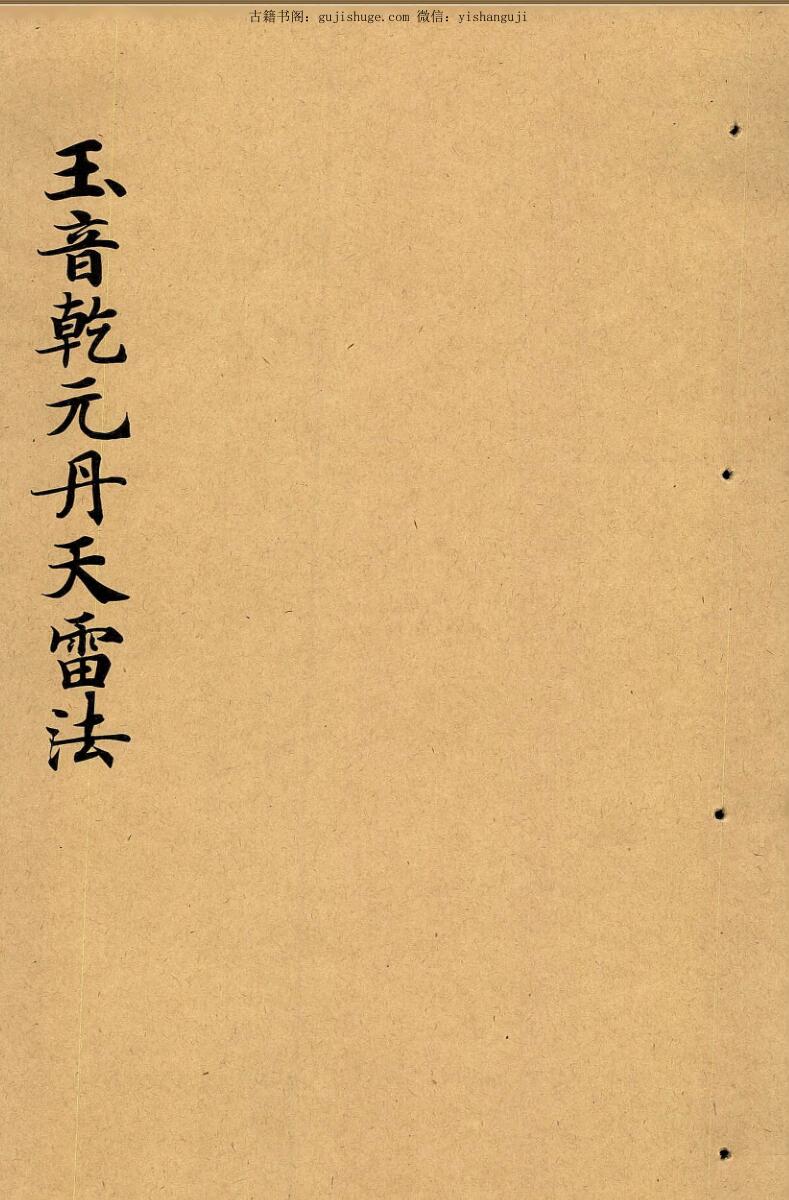 古籍书阁：gujishuge.com 微信：yishanguji
玉音乾元丹天雷法